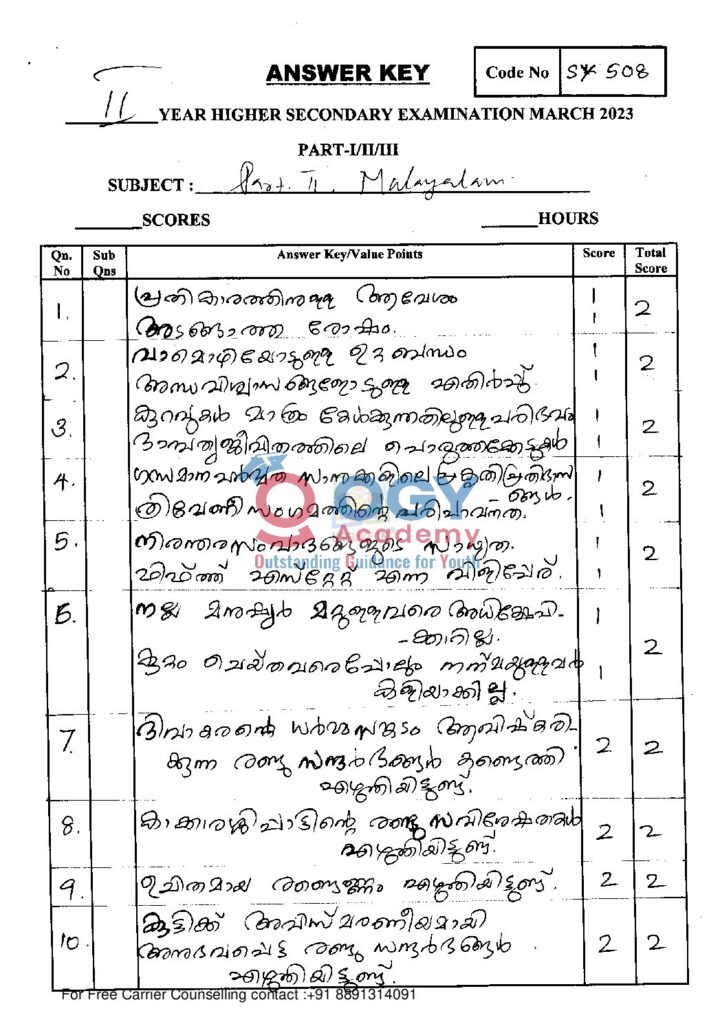 ANSWER KEY
Code No SY 508
II YEAR HIGHER SECONDARY EXAMINATION MARCH 2023
PART-I/II/III
SUBJECT : Part. II. Malayalam
SCORES HOURS
Qn. No Sub Qns Answer Key/Value Points Score Total Score
1. പ്രതികാരത്തിനുള്ള ആവേശം 1 2
അടങ്ങാത്ത രോഷം. 1
2. വാമൊഴിയോടുള്ള ദൃഢബന്ധം 1 2
അന്ധവിശ്വാസങ്ങളോടുള്ള എതിർപ്പ്. 1
3. കുറവുകൾ മാത്രം കേൾക്കുന്നതിലുള്ള പരിഭവം 1 2
ദാമ്പത്യജീവിതത്തിലെ പൊരുത്തക്കേടുകൾ 1
4. ഗന്ധമാദന പർവ്വത സാനുക്കളിലെ പ്രകൃതി 1 2
ങ്ങൾ.
ത്രിവേണീസംഗമത്തിന്റെ പരിപാവനത. 1
5. നിരന്തരസംവാദങ്ങളുടെ സാധ്യത. 1 2
ഫിഫ്ത്ത് എസ്റ്റേറ്റ് എന്ന വിളിപ്പേര്. 1
6. നല്ല മനുഷ്യർ മറ്റുള്ളവരെ അധിക്ഷേപി- 1 2
-ക്കാറില്ല.
ദ്രോഹം ചെയ്തവരെപ്പോലും നന്മയുള്ളവർ 1
കളിയാക്കില്ല.
7. ദിവാകരന്റെ ധർമ്മസങ്കടം ആവിഷ്കരി- 2 2
ക്കുന്ന രണ്ടു സന്ദർഭങ്ങൾ കണ്ടെത്തി
എഴുതിയിട്ടുണ്ട്.
8. കാക്കാരശ്ശിപ്പാട്ടിന്റെ രണ്ടു സവിശേഷതകൾ 2 2
എഴുതിയിട്ടുണ്ട്.
9. ഉചിതമായ രണ്ടെണ്ണം എഴുതിയിട്ടുണ്ട്. 2 2
10. കുട്ടിക്ക് അവിസ്മരണീയമായി 2 2
അനുഭവപ്പെട്ട രണ്ടു സന്ദർഭങ്ങൾ
എഴുതിയിട്ടുണ്ട്.
OGY
Academy
Outstanding Guidance for Youth
For Free Carrier Counselling contact :+91 8891314091